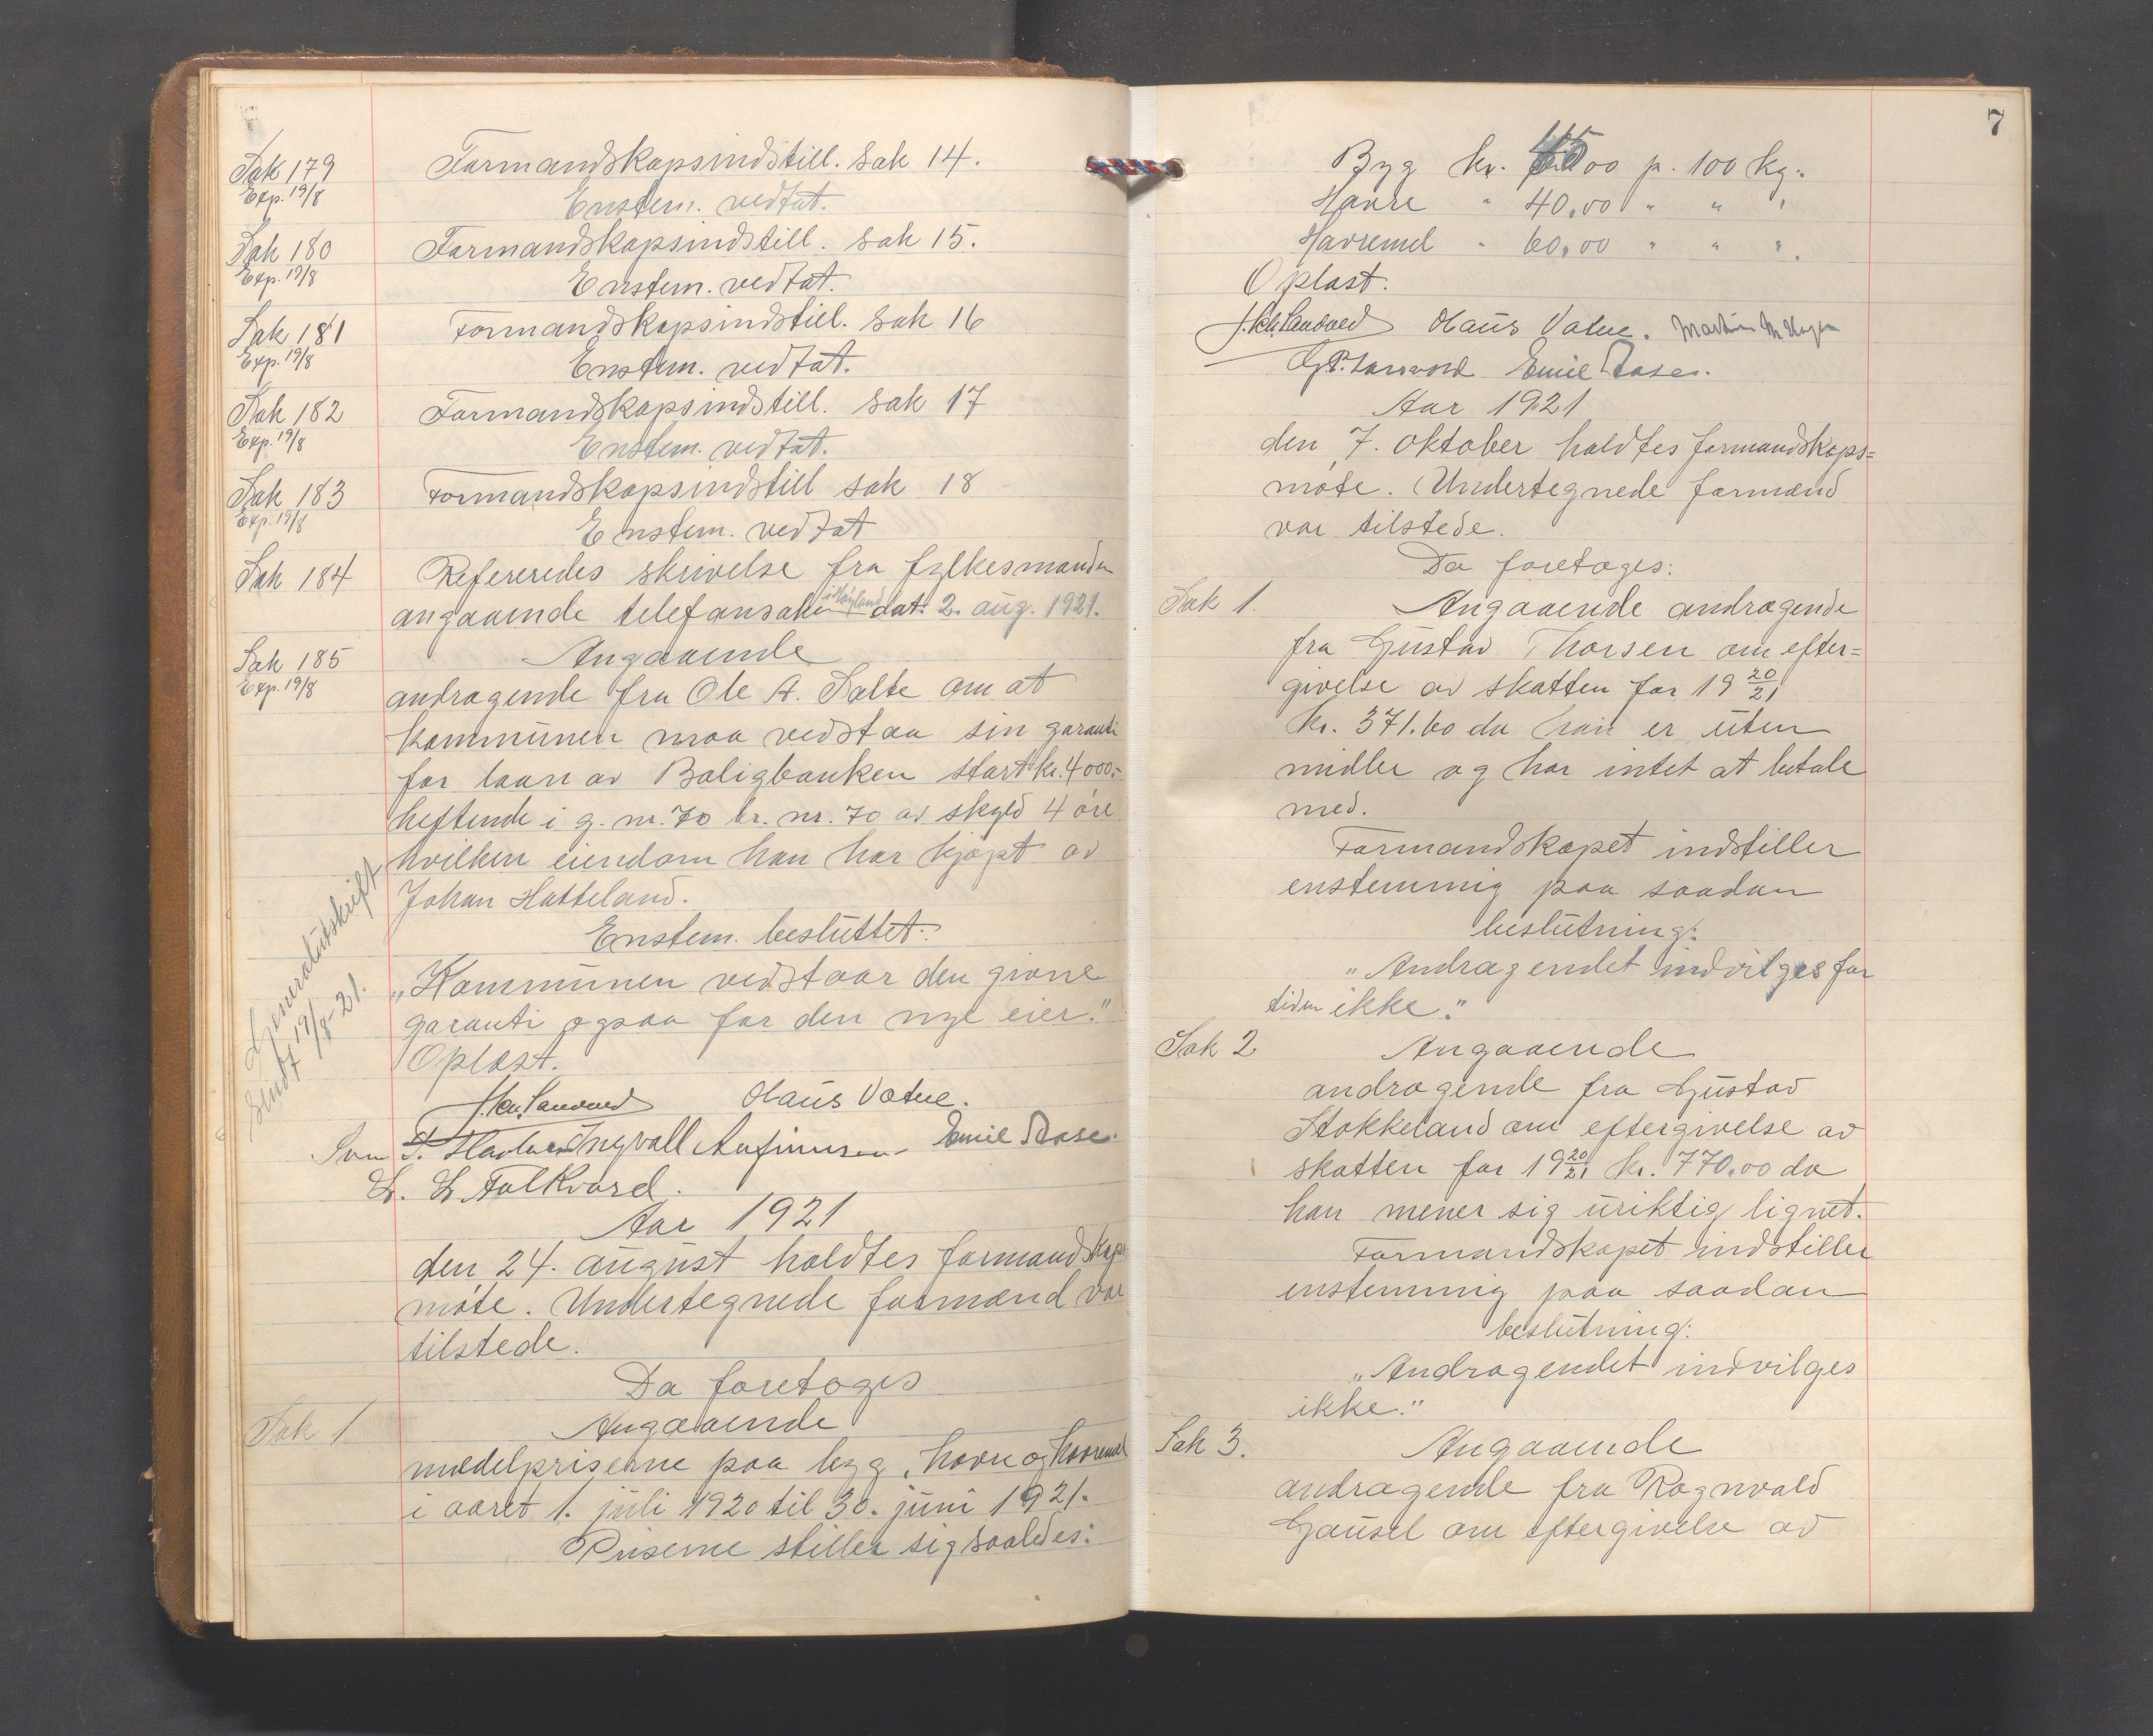 Sak 179 Formandskapsindstill. sak 14.
Exp. 19/8 Enstem. vedtat.
Sak 180 Formandskapsindstill. sak 15.
Exp. 19/8 Enstem. vedtat.
Sak 181 Formandskapsindstill. sak 16
Exp. 19/8 Enstem. vedtat.
Sak 182 Formandskapsindstill. sak 17
Exp. 19/8 Enstem. vedtat.
Sak 183 Formandskapsindstill sak 18
Exp. 19/8 Enstem. vedtat
Sak 184 Refereredes skrivelse fra fylkesmanden
angaaende telefonsaken i Høyland dat. 2. aug. 1921.
Sak 185 Angaaende
Exp. 19/8 andragende fra Ole A. Salte om at
kommunen maa vedstaa sin garanti
for laan av Boligbanken stort kr. 4000.-
heftende i g. nr. 70 br. nr. 70 av skyld 4 øre
hvilken eiendom han har kjøpt av
Johan Hatteland.
Enstem. besluttet:
„Kommunen vedstaar den givne
garanti ogsaa for den nye eier."
Generalutskrift
sendt 19/8-21.
Oplæst.
J. Chr. Sandved Olaus Vatne.
Ingvall Aufinnsen Emil Aase.
L. L. Folkvord.
Aar 1921
den 24. august holdtes formandskaps
møte. Undertegnede formænd var
tilstede.
Da foretoges
Sak 1 Angaaende
medelpriserne paa byg, havre og havremel
i aaret 1. juli 1920 til 30. juni 1921.
Priserne stiller sig saaledes:
7
Byg kr. 45,00 p. 100 kg.
Havre " 40,00 " " "
Havremel " 60,00 " " ".
Oplæst.
J. Chr. Sandved Olaus Vatne. Martin M.
Emil Aase.
Aar 1921
den 7. oktober holdtes formandskaps=
møte. Undertegnede formænd
var tilstede.
Da foretoges:
Sak 1. Angaaende andragende
fra Gustav Thorsen om efter=
givelse av skatten for 19 20/21
kr. 371.60 da han er uten
midler og har intet at betale
med.
Formandskapet indstiller
enstemmig paa saadan
beslutning:
"Andragendet indvilges for
tiden ikke."
Sak 2 Angaaende
andragende fra Gustav
Stokkeland om eftergivelse av
skatten for 19 20/21 kr. 770,00 da
han mener sig uriktig lignet.
Formandskapet indstiller
enstemmig paa saadan
beslutning:
„Andragendet indvilges
ikke."
Sak 3. Angaaende
andragende fra Ragnvald
Gausel om eftergivelse av